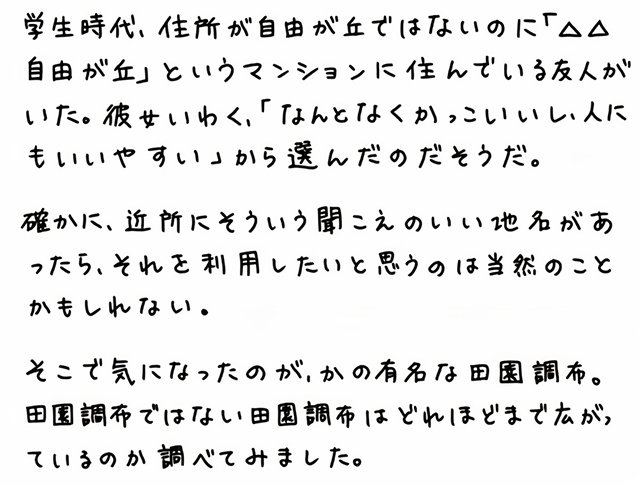 学生時代、住所が自由が丘ではないのに「△△
自由が丘」というマンションに住んでいる友人が
いた。彼女いわく、「なんとなくかっこいいし、人に
もいいやすい」から選んだのだそうだ。
確かに、近所にそういう聞こえのいい地名があ
ったら、それを利用したいと思うのは当然のこと
かもしれない。
そこで気になったのが、かの有名な田園調布。
田園調布ではない田園調布はどれほどまで広がっ
ているのか調べてみました。